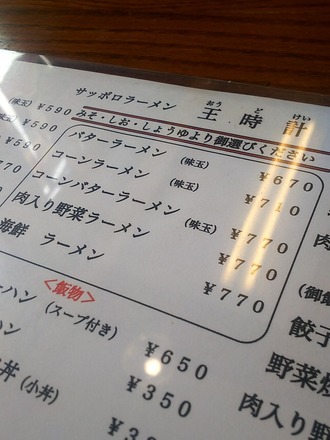 サッポロラーメン 王時計
おう ど けい
みそ・しお・しょうゆより御選びください
(味玉) ￥590
(味玉) ￥590
バターラーメン (味玉) ￥670
コーンラーメン (味玉) ￥710
コーンバターラーメン ￥770
肉入り野菜ラーメン (味玉) ￥770
海鮮 ラーメン ￥770
<飯物>
ーハン (スープ付き) ￥650
ハン ￥350
丼 (小丼)
肉
(御飯
餃子
野菜
肉入り